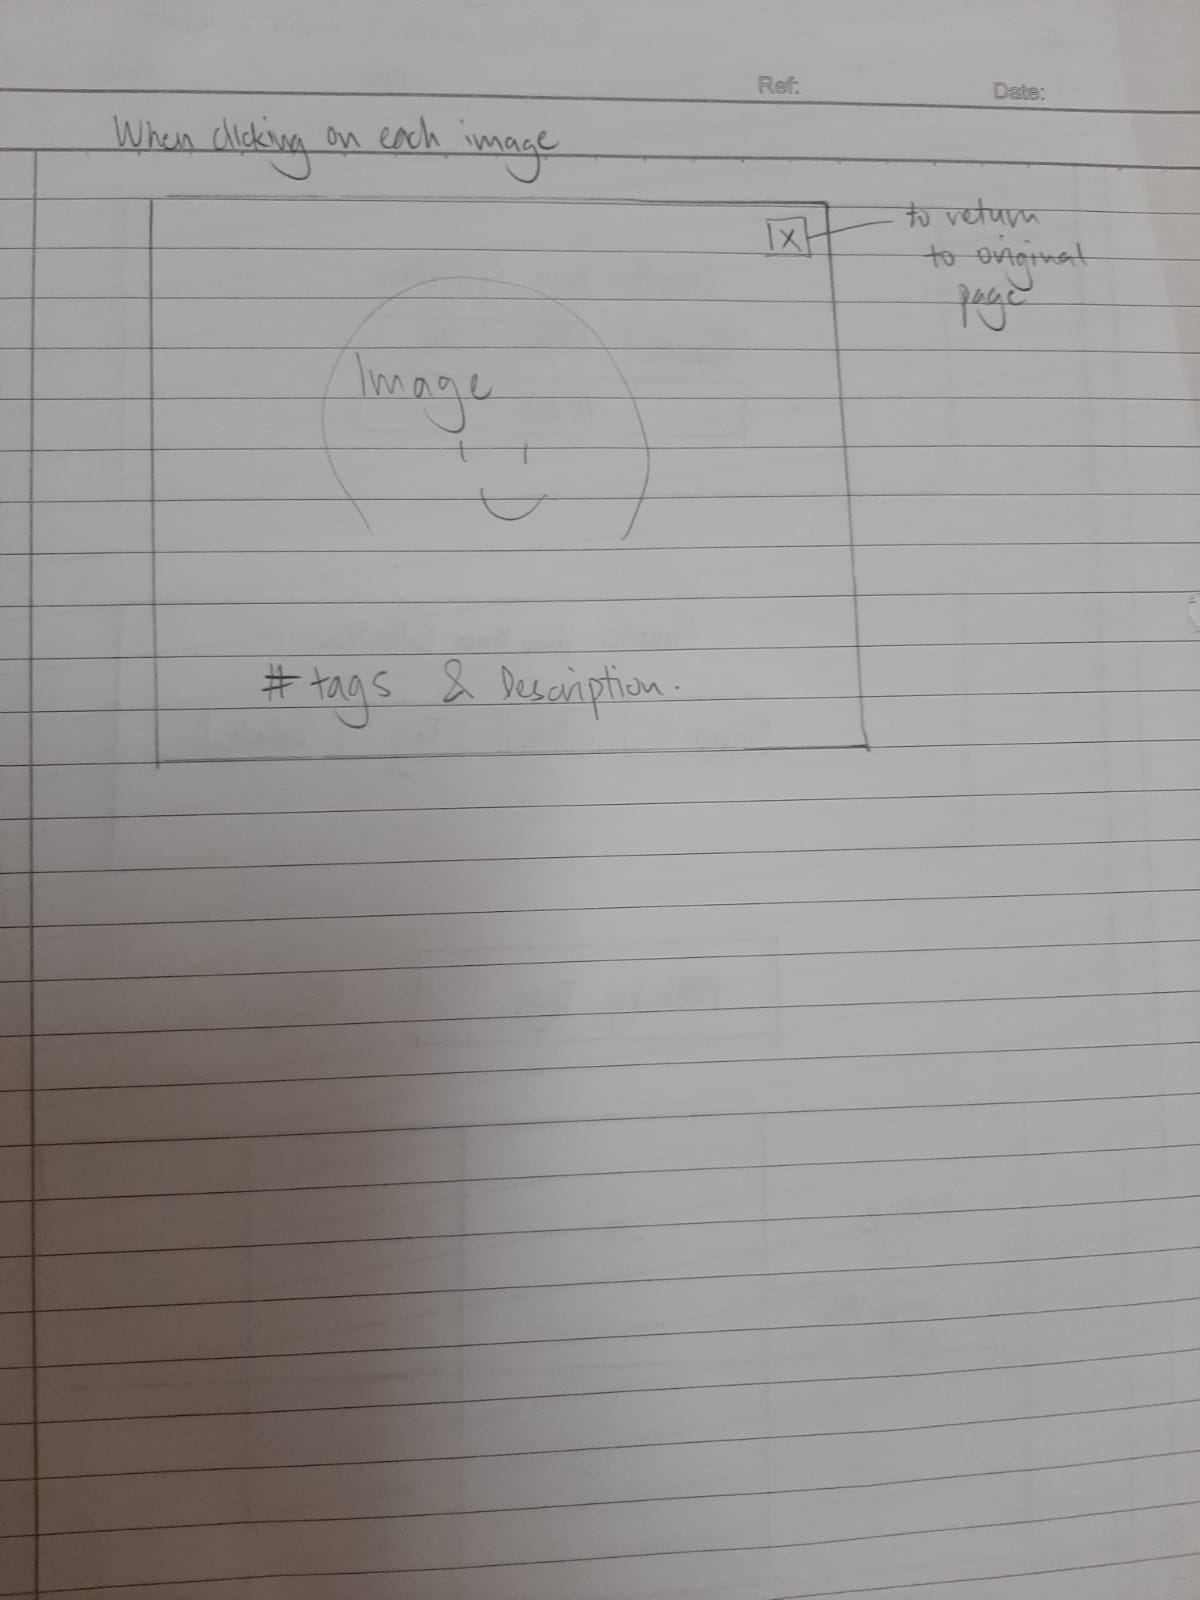 Ref:
Date:
When clicking on each image
X
to return
to original
page
Image
#tags & Description.